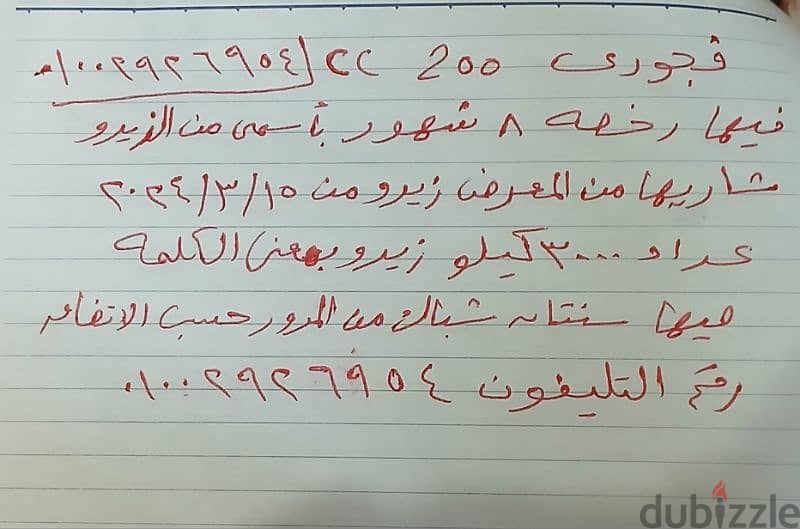 ڤجورى 200 CC ٠١٠٠٢٩٢٦٩٥٤
فيها رخصه ٨ شهور بأسمى من الزيرو
شاريها من المعرض زيرو من ٢٠٢٤/٣/١٥
عداد ٣٠٠٠ كيلو زيرو بمعنى الكلمه
فيها سنتان شباك من المرور حسب الاتفاق
رقم التليفون ٠١٠٠٢٩٢٦٩٥٤
dubizzle